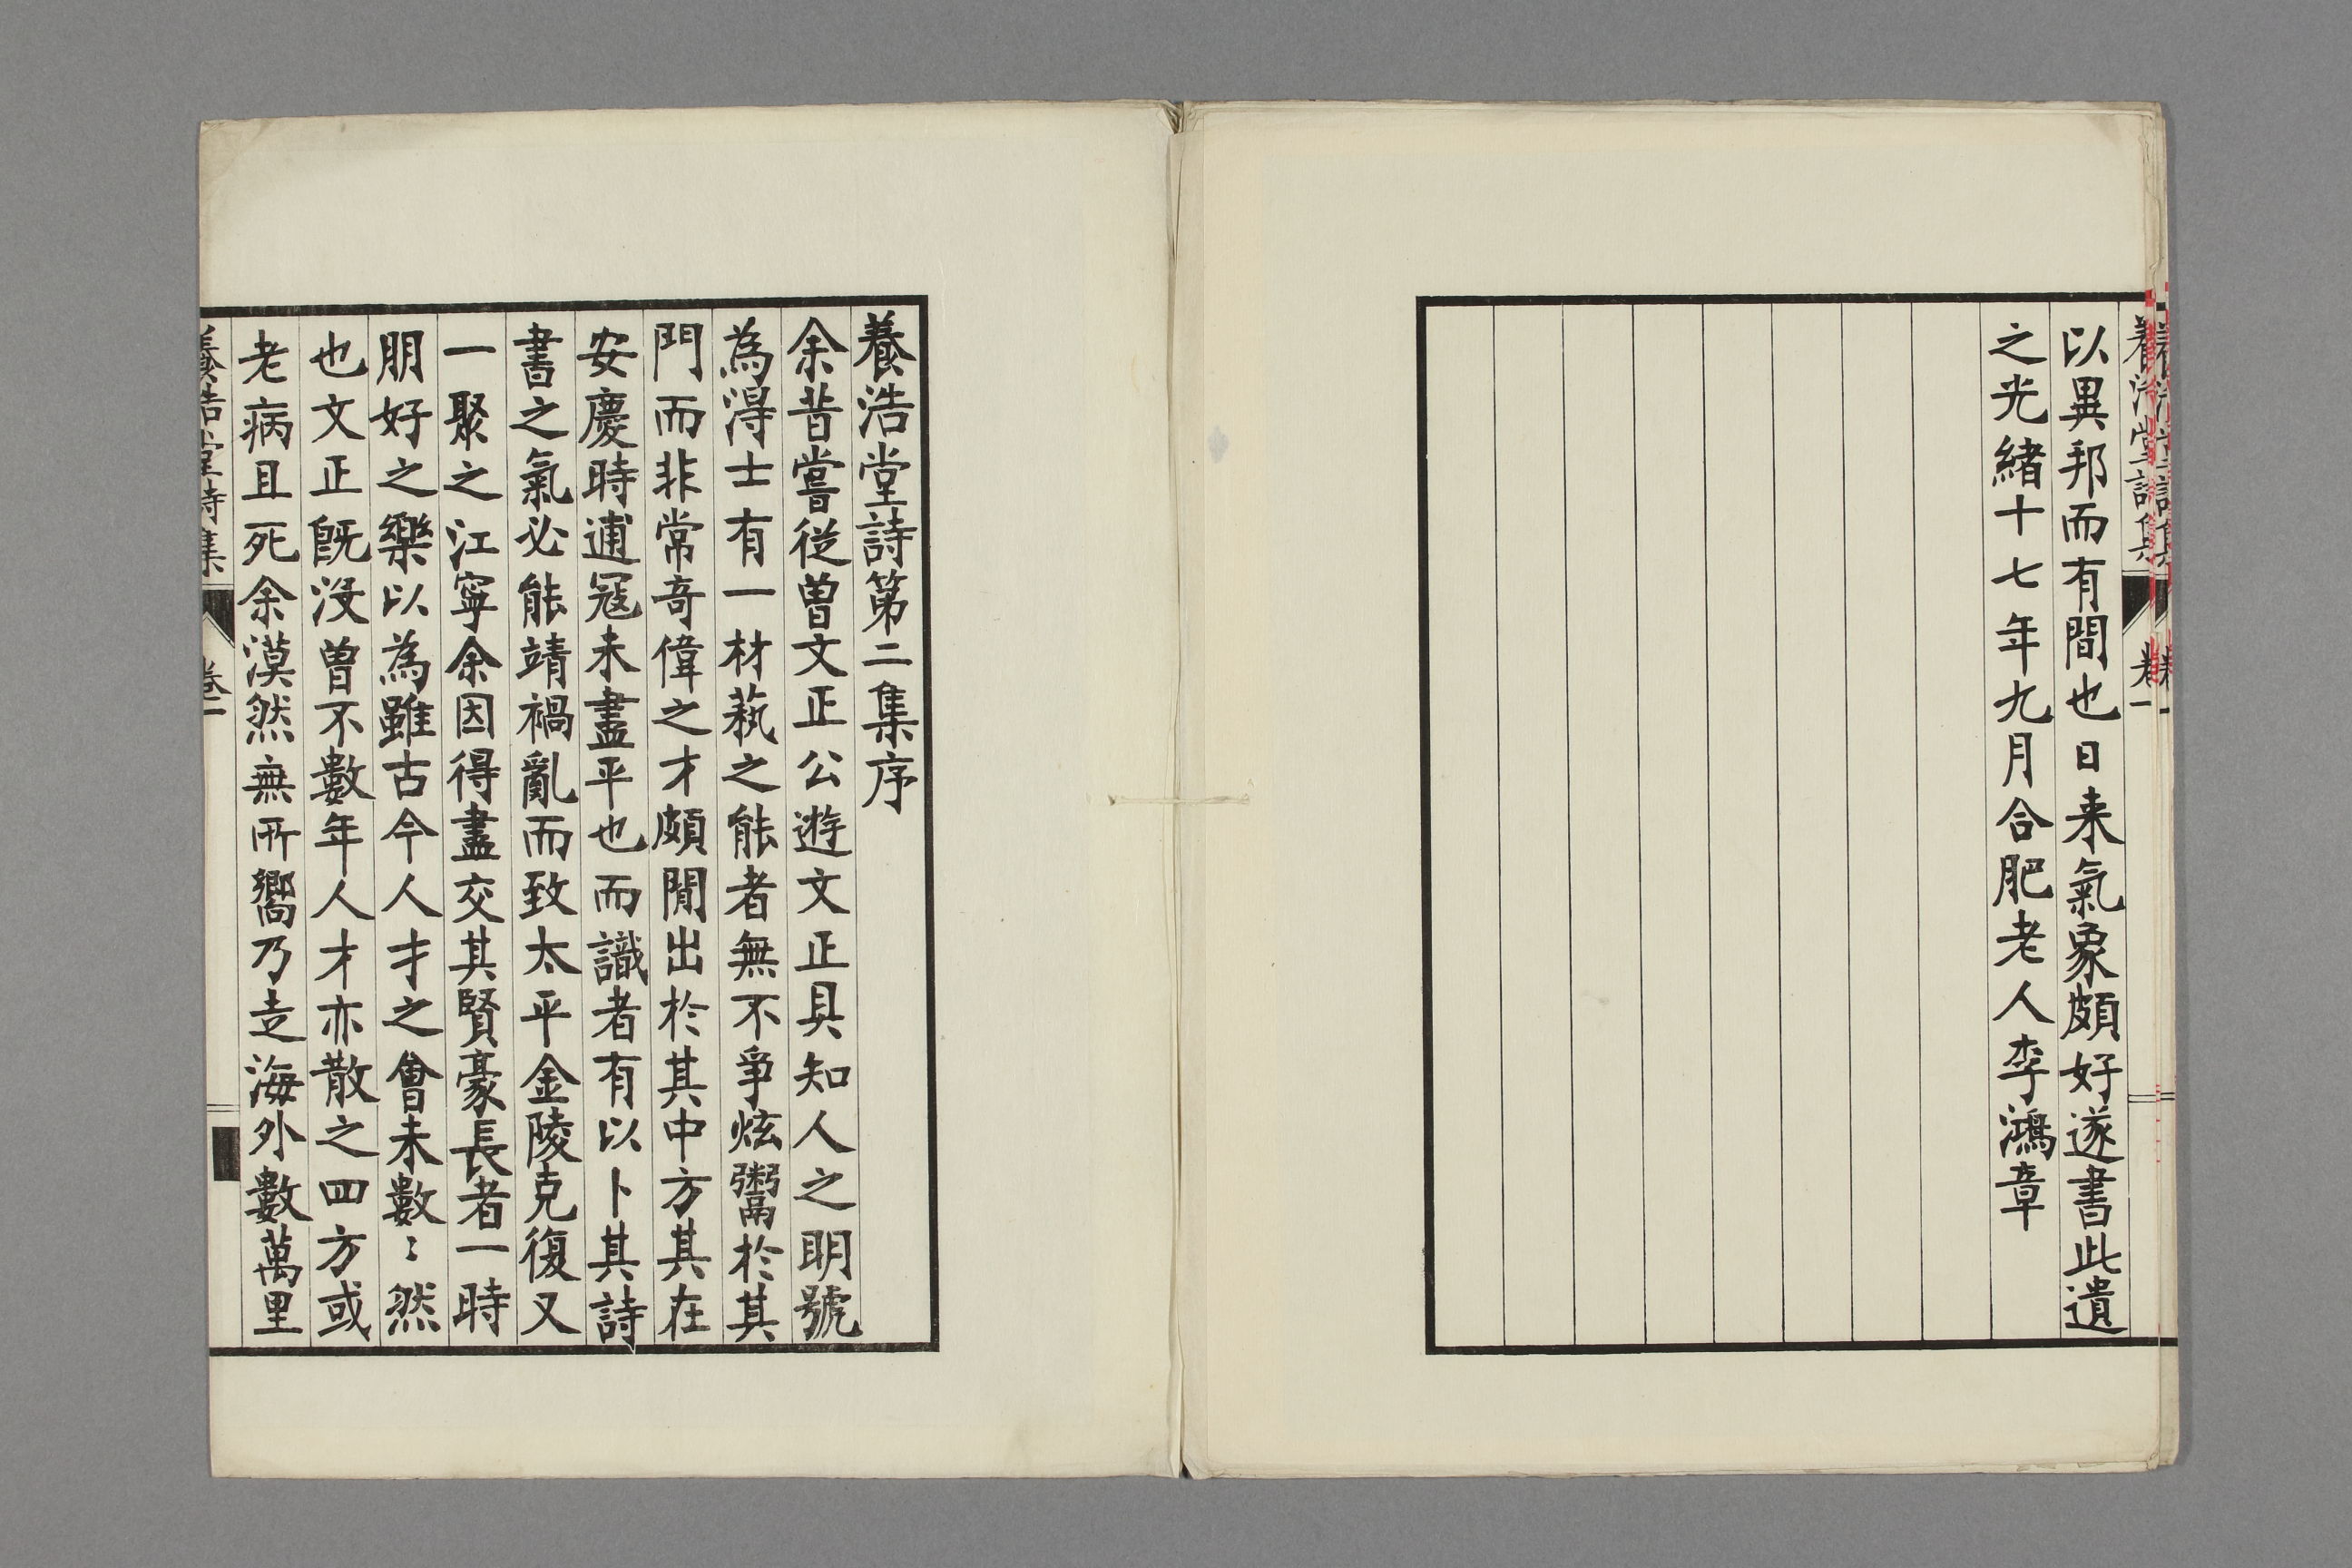 養浩堂詩集
卷一
以異邦而有間也日来氣象頗好遂書此遺
之光緒十七年九月合肥老人李鴻章
養浩堂詩第二集序
余昔嘗從曾文正公遊文正具知人之明號
為淂士有一材蓺之能者無不爭炫鬻於其
門而非常奇偉之才頗閒出於其中方其在
安慶時逋寇未盡平也而識者有以卜其詩
書之氣必能靖禍亂而致太平金陵克復又
一聚之江寧余因得盡交其賢豪長者一時
朋好之樂以為雖古今人才之會未數〻然
也文正旣沒曾不數年人才亦散之四方或
老病且死余漠然無所嚮乃走海外數萬里
養浩堂詩集
卷二